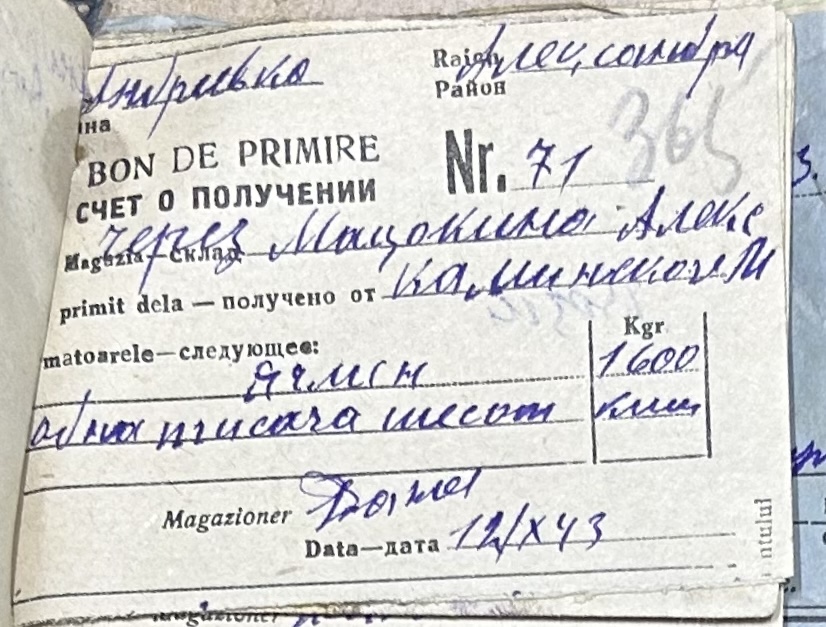 Raion
Район
ина
BON DE PRIMIRE
Nr. 71
365
СЧЕТ О ПОЛУЧЕНИИ
через Мацокина Алекс
Magazia—Склад
primit dela — получено от Каминского М
Kgr
matoarele—следующее:
Ячмен 1600
одна тисача шесот кил
Magazioner
Data—дата 12/X 43
ntului
Magazioner